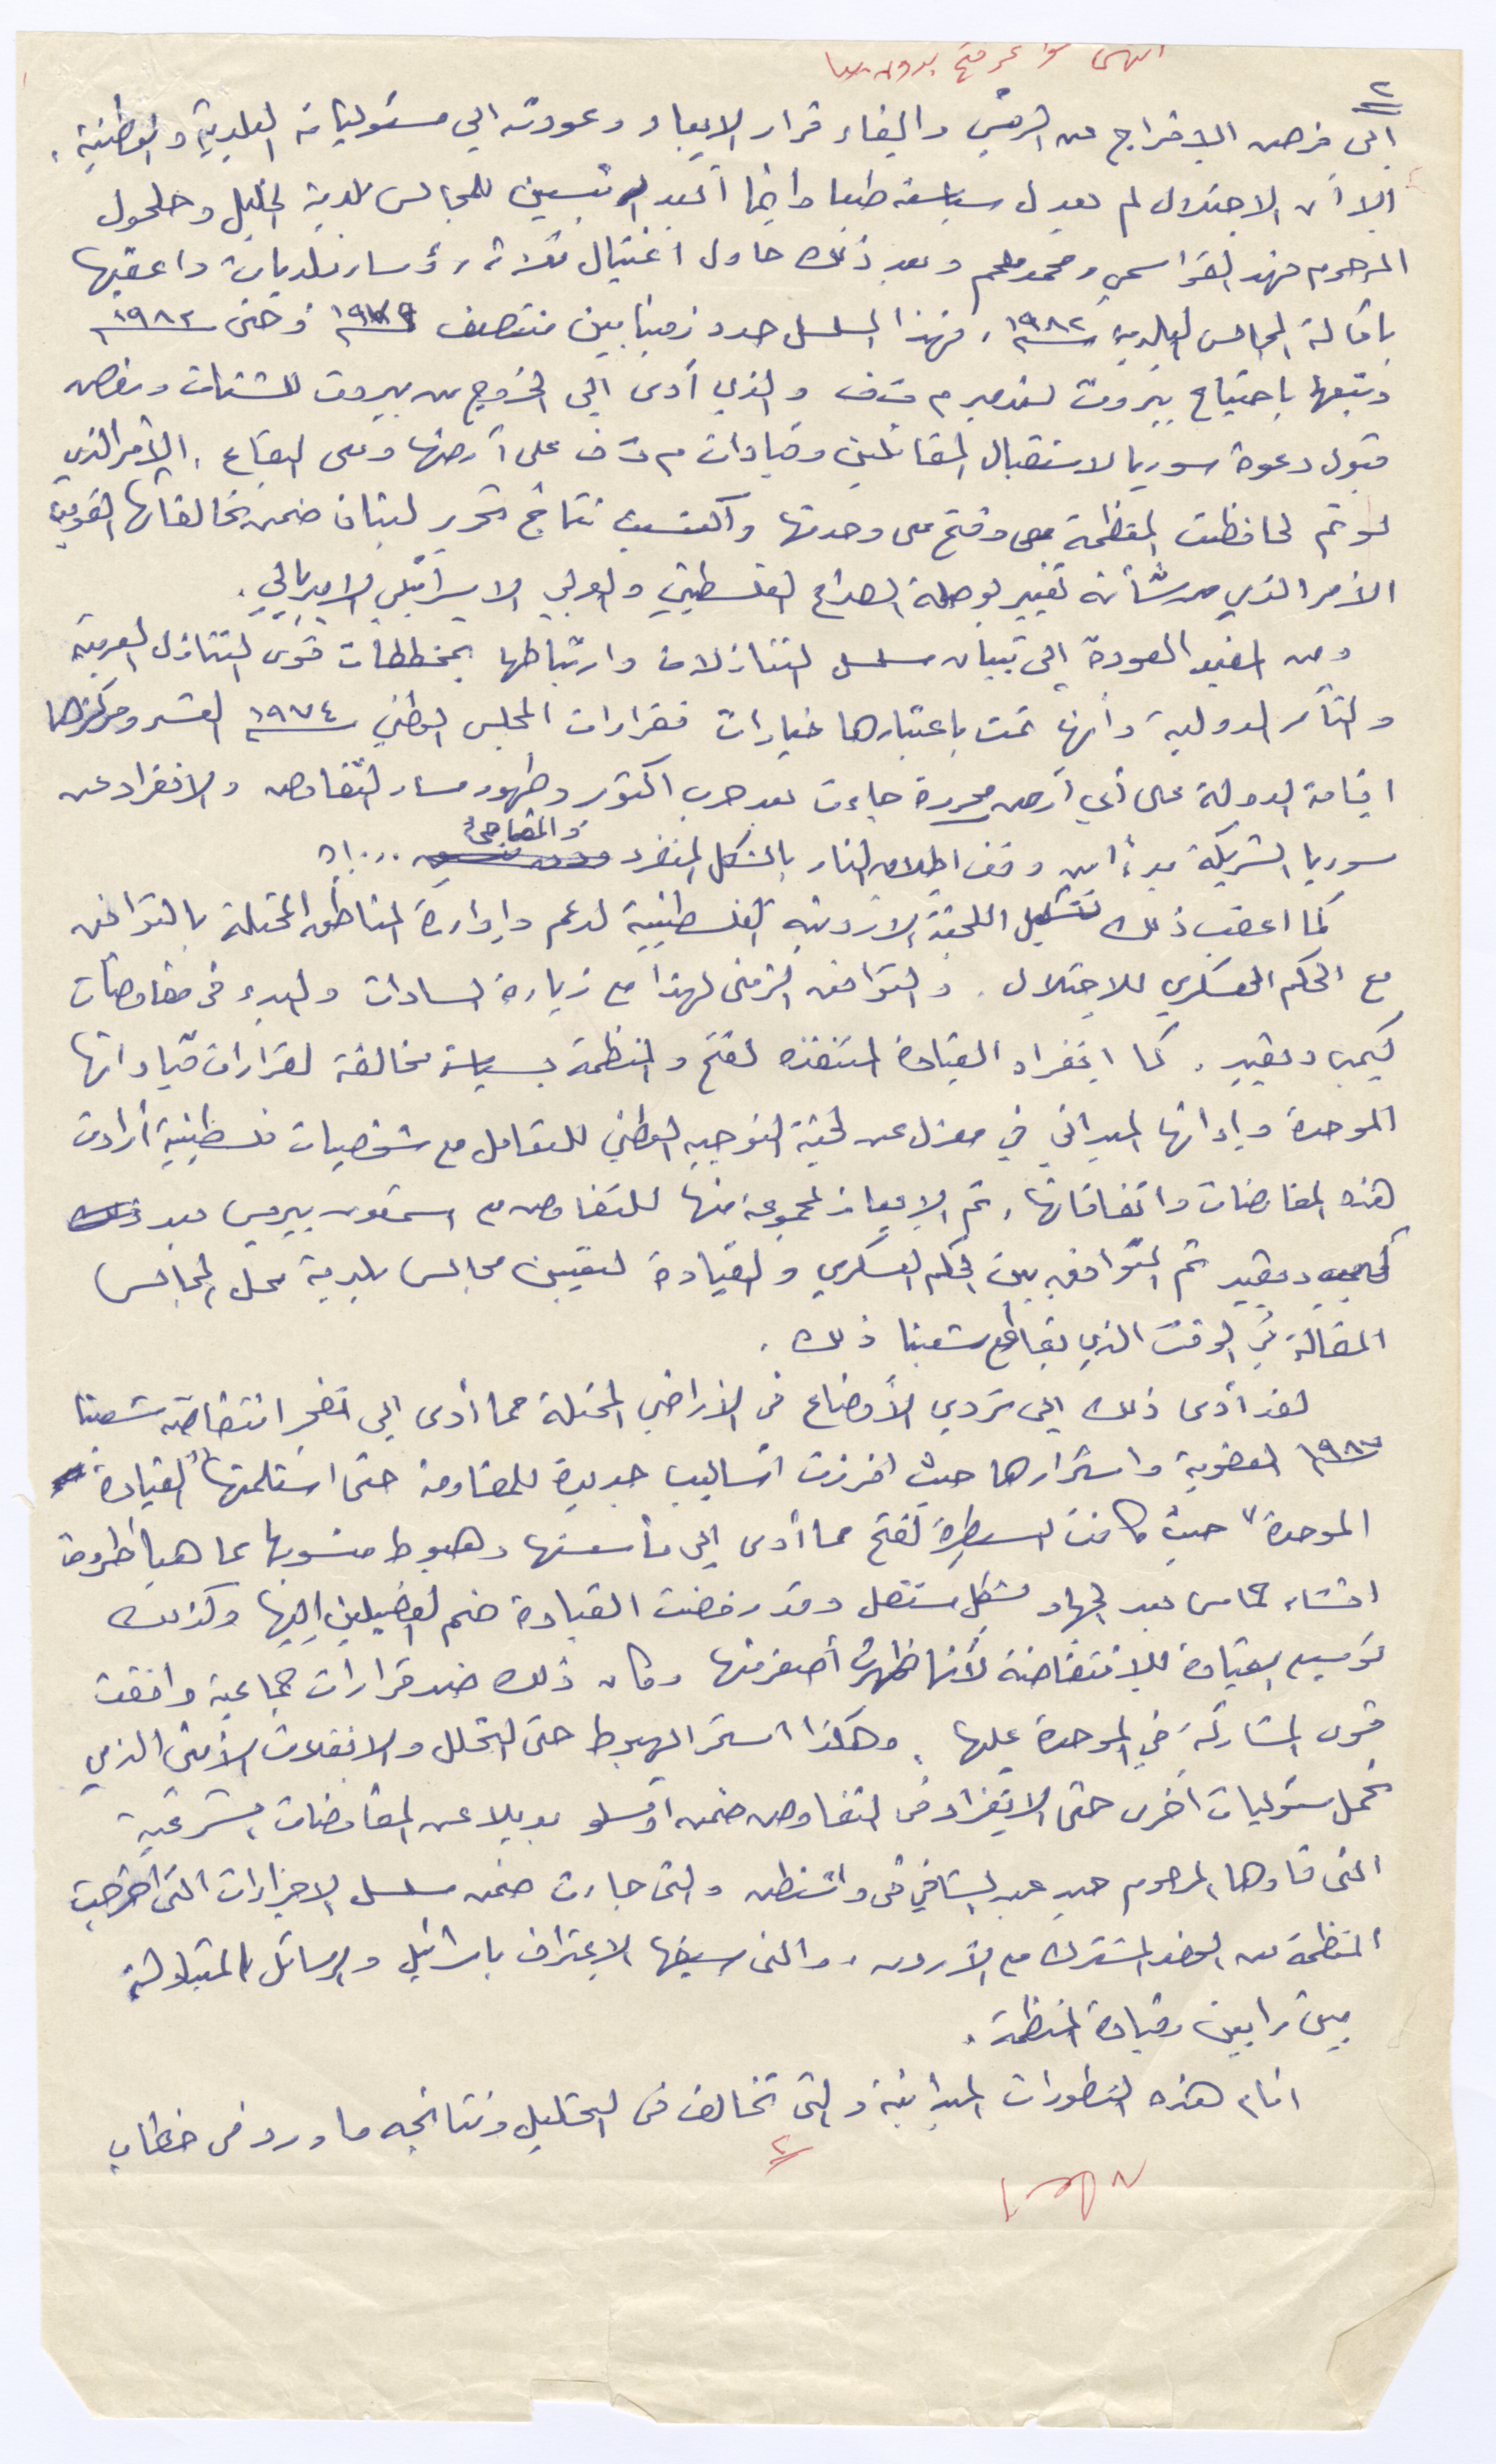 ٢
إلى فرض الإفراج عن الرئيس والغاء قرار الابعاد وعودته إلى مسئولياته البلدية والوطنية.
إلا أن الاحتلال لم يعدل سياسته طبعا وانما أبعد الرئيسين للمجالس بلدية الخليل وحلحول
المرحوم فهد القواسمي ومحمد ملحم وبعد ذلك حاول اغتيال ثلاثة رؤساء بلديات واعقبها
باقالة المجالس البلدية ١٩٨٢، فهذا المسلسل حدد زمنيا بين منتصف ١٩٧٩ وحتى ١٩٨٢
وتبعها باجتياح بيروت لتدمير م ت ف والذي أدى إلى الخروج من بيروت للشتات ورفض
قبول دعوة سوريا لاستقبال المقاتلين وقيادات م ت ف على أرضها وعلى البقاع. الأمر الذي
لو تم لحافظت المنظمة وفتح على وحدتها واكتسبت نتائج تحرير لبنان ضمن تحالفاتها القومية
الأمر الذي من شأنه تغيير بوصلة الصراع الفلسطيني والعربي الاسرائيلي الامبريالي.
ومن المفيد العودة إلى تبيان مسلسل التنازلات وارتباطها بمخططات قوى التنازل العربية
والتآمر الدولية وأنها تمت باعتبارها خيارات فقرارات المجلس الوطني ١٩٧٤ العشر ومركزها
اقامة الدولة على أي أرض محررة جاءت بعد حرب اكتوبر وظهور مسار التفاوض والانفراد عن
سوريا الشريكة بدءاً من وقف اطلاق النار بالشكل المنفرد والمفاجئ ...!؟
كما اعقب ذلك تشكيل اللجنة الاردنية الفلسطينية لدعم وإدارة المناطق المحتلة بالتوافق
مع الحكم العسكري للاحتلال. والتوافق الزمني لهذا مع زيارة السادات والبدء في مفاوضات
كيمب ديفيد. كما انفراد القيادة المتنفذه لفتح والمنظمة بسياسة مخالفة لقرارات قياداتها
الموحدة وإدائها الميداني في معزل عن لجنة التوجيه الوطني للتعامل مع شخصيات فلسطينية أرادت
هذه المفاوضات واتفاقاتها، تم الايعاز لمجموعة منها للتفاوض مع شمعون بيريس بعد ذلك
كامب ديفيد تم التوافق بين الحكم العسكري والقيادة لتعيين مجالس بلدية محل المجالس
المقالة في الوقت الذي يقاطع شعبنا ذلك.
لقد أدى ذلك إلى تردي الأوضاع في الأراضي المحتلة مما أدى إلى تفجر انتفاضة شعبنا
١٩٨٧ العفوية واستمرارها حيث افرزت أساليب جديدة للمقاومة حتى استلمتها "القيادة
الموحدة" حيث كانت السيطرة لفتح مما أدى إلى مأسستها وهبوط منسوبها مما هيأ ظروف
انشاء حماس بعد الجهاد بشكل مستقل وقد رفضت القيادة ضم الفصيلين إليها وكذلك
توسيع القيادة للانتفاضة لأنها ظهرت أصغر منها وكان ذلك ضد قرارات جماعية وافقت
قوى المشاركة في الموحدة عليها. وهكذا استمر الهبوط حتى التحلل والانفلات الأمني الذي
تحمل مسئوليات أخرى حتى الانفراد في التفاوض ضمن أوسلو بديلا عن المفاوضات الشرعية
التي قادها المرحوم حيدر عبد الشافي في واشنطن والتي جاءت ضمن مسلسل الاجراءات التي أخرجت
المنظمة من الوفد المشترك مع الأردن، والتي سبقها الاعتراف باسرائيل والرسائل المتبادلة
بين رابين وقيادة المنظمة.
امام هذه التطورات الميدانية والتي تخالف في التحليل ونتائجه ما ورد في خطاب
٢